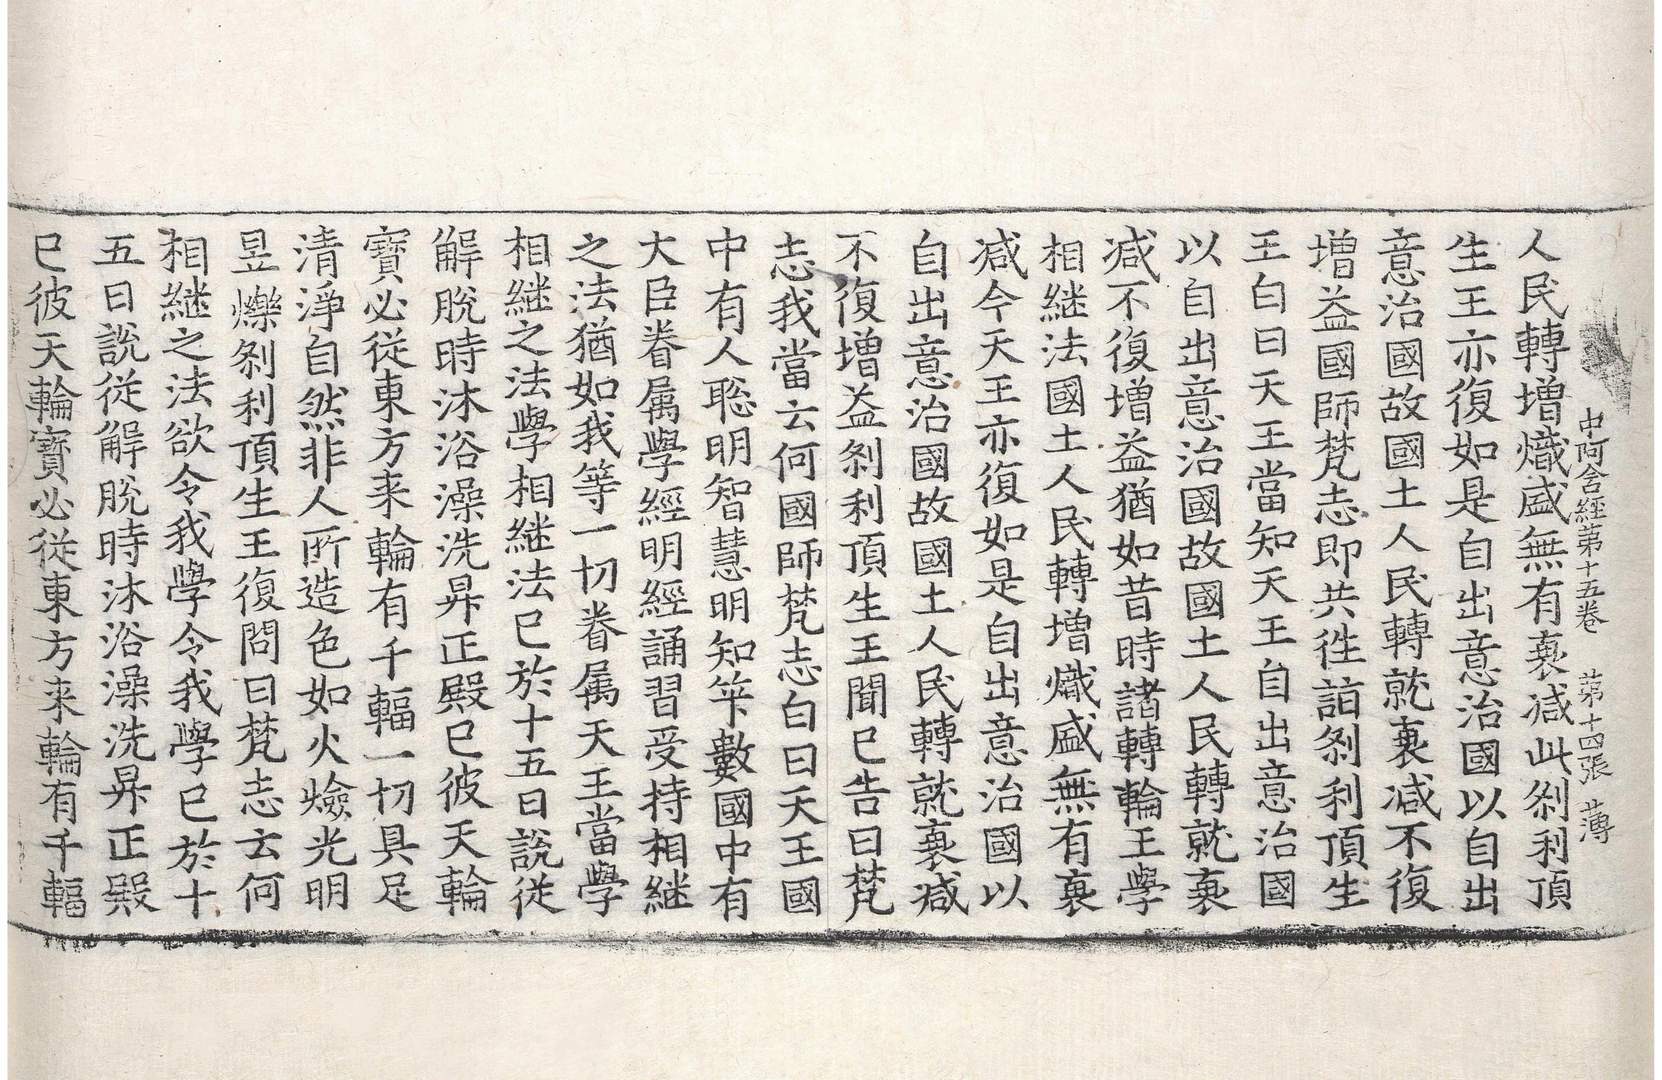 中阿含經第十五卷 第十四張 薄
人民轉增熾盛無有衰减此剎利頂
生王亦復如是自出意治國以自出
意治國故國土人民轉就衰减不復
增益國師梵志即共往詣剎利頂生
王白曰天王當知天王自出意治國
以自出意治國故國土人民轉就衰
减不復增益猶如昔時諸轉輪王學
相継法國土人民轉增熾盛無有衰
减今天王亦復如是自出意治國以
自出意治國故國土人民轉就衰减
不復增益剎利頂生王聞已告曰梵
志我當云何國師梵志白曰天王國
中有人聡明智慧明知筭數國中有
大臣眷属學經明經誦習受持相継
之法猶如我等一切眷属天王當學
相継之法學相継法已於十五日說從
解脫時沐浴澡洗昇正殿已彼天輪
寶必從東方来輪有千輻一切具足
清淨自然非人所造色如火㷿光明
昱爍剎利頂生王復問曰梵志云何
相継之法欲令我學令我學已於十
五日說從解脫時沐浴澡洗昇正殿
已彼天輪寶必從東方来輪有千輻